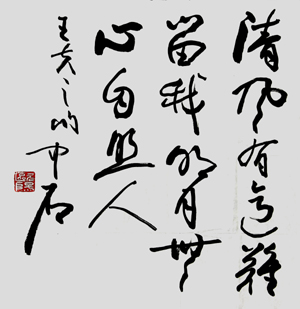 清風有意難
留我明月無
心自照人
王夫之 中石